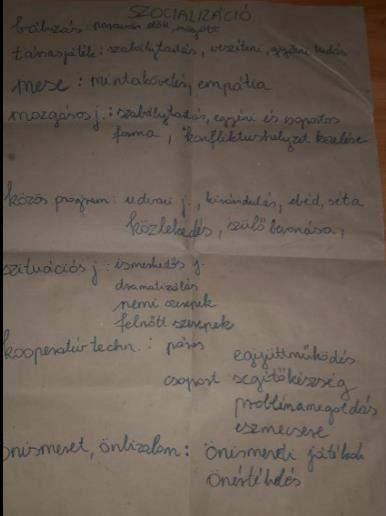 SZOCIALIZÁCIÓ
bábozás: paraván előtt, mögött
társasjáték: szabálytartás, veszíteni, győzni tudás
mese: mintakövetés, empátia
mozgásos j.: szabálytartás, egyéni és csoportos
forma, konfliktushelyzet kezelése
közös program: udvari j., kirándulás, ebéd, séta
közlekedés, szülő bevonása,
szituációs j: ismerkedős j.
dramatizálás
nemi szerepek
felnőtt szerepek
kooperatív techn.: páros
együttműködés
csoport segítőkészség
problémamegoldás
eszmecsere
önismeret, önbizalom: önismereti játékok
önértékelés